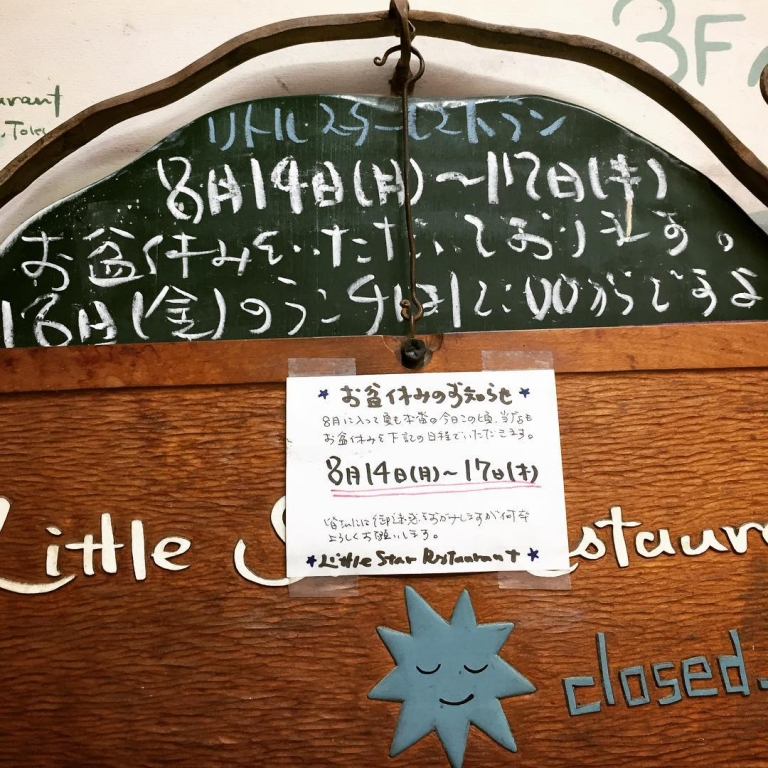 3F
リトルスターレストラン
8月14日(月)〜17日(木)
お盆休みをいただいております。
18日(金)のランチは12:00からですよ
★お盆休みのお知らせ★
8月に入って夏も本番の今日この頃、当店も
お盆休みを下記の日程でいただきます。
8月14日(月)〜17日(木)
皆さんには御迷惑をおかけしますが何卒
よろしくお願いします。
★Little Star Restaurant★
Little S staura
closed.